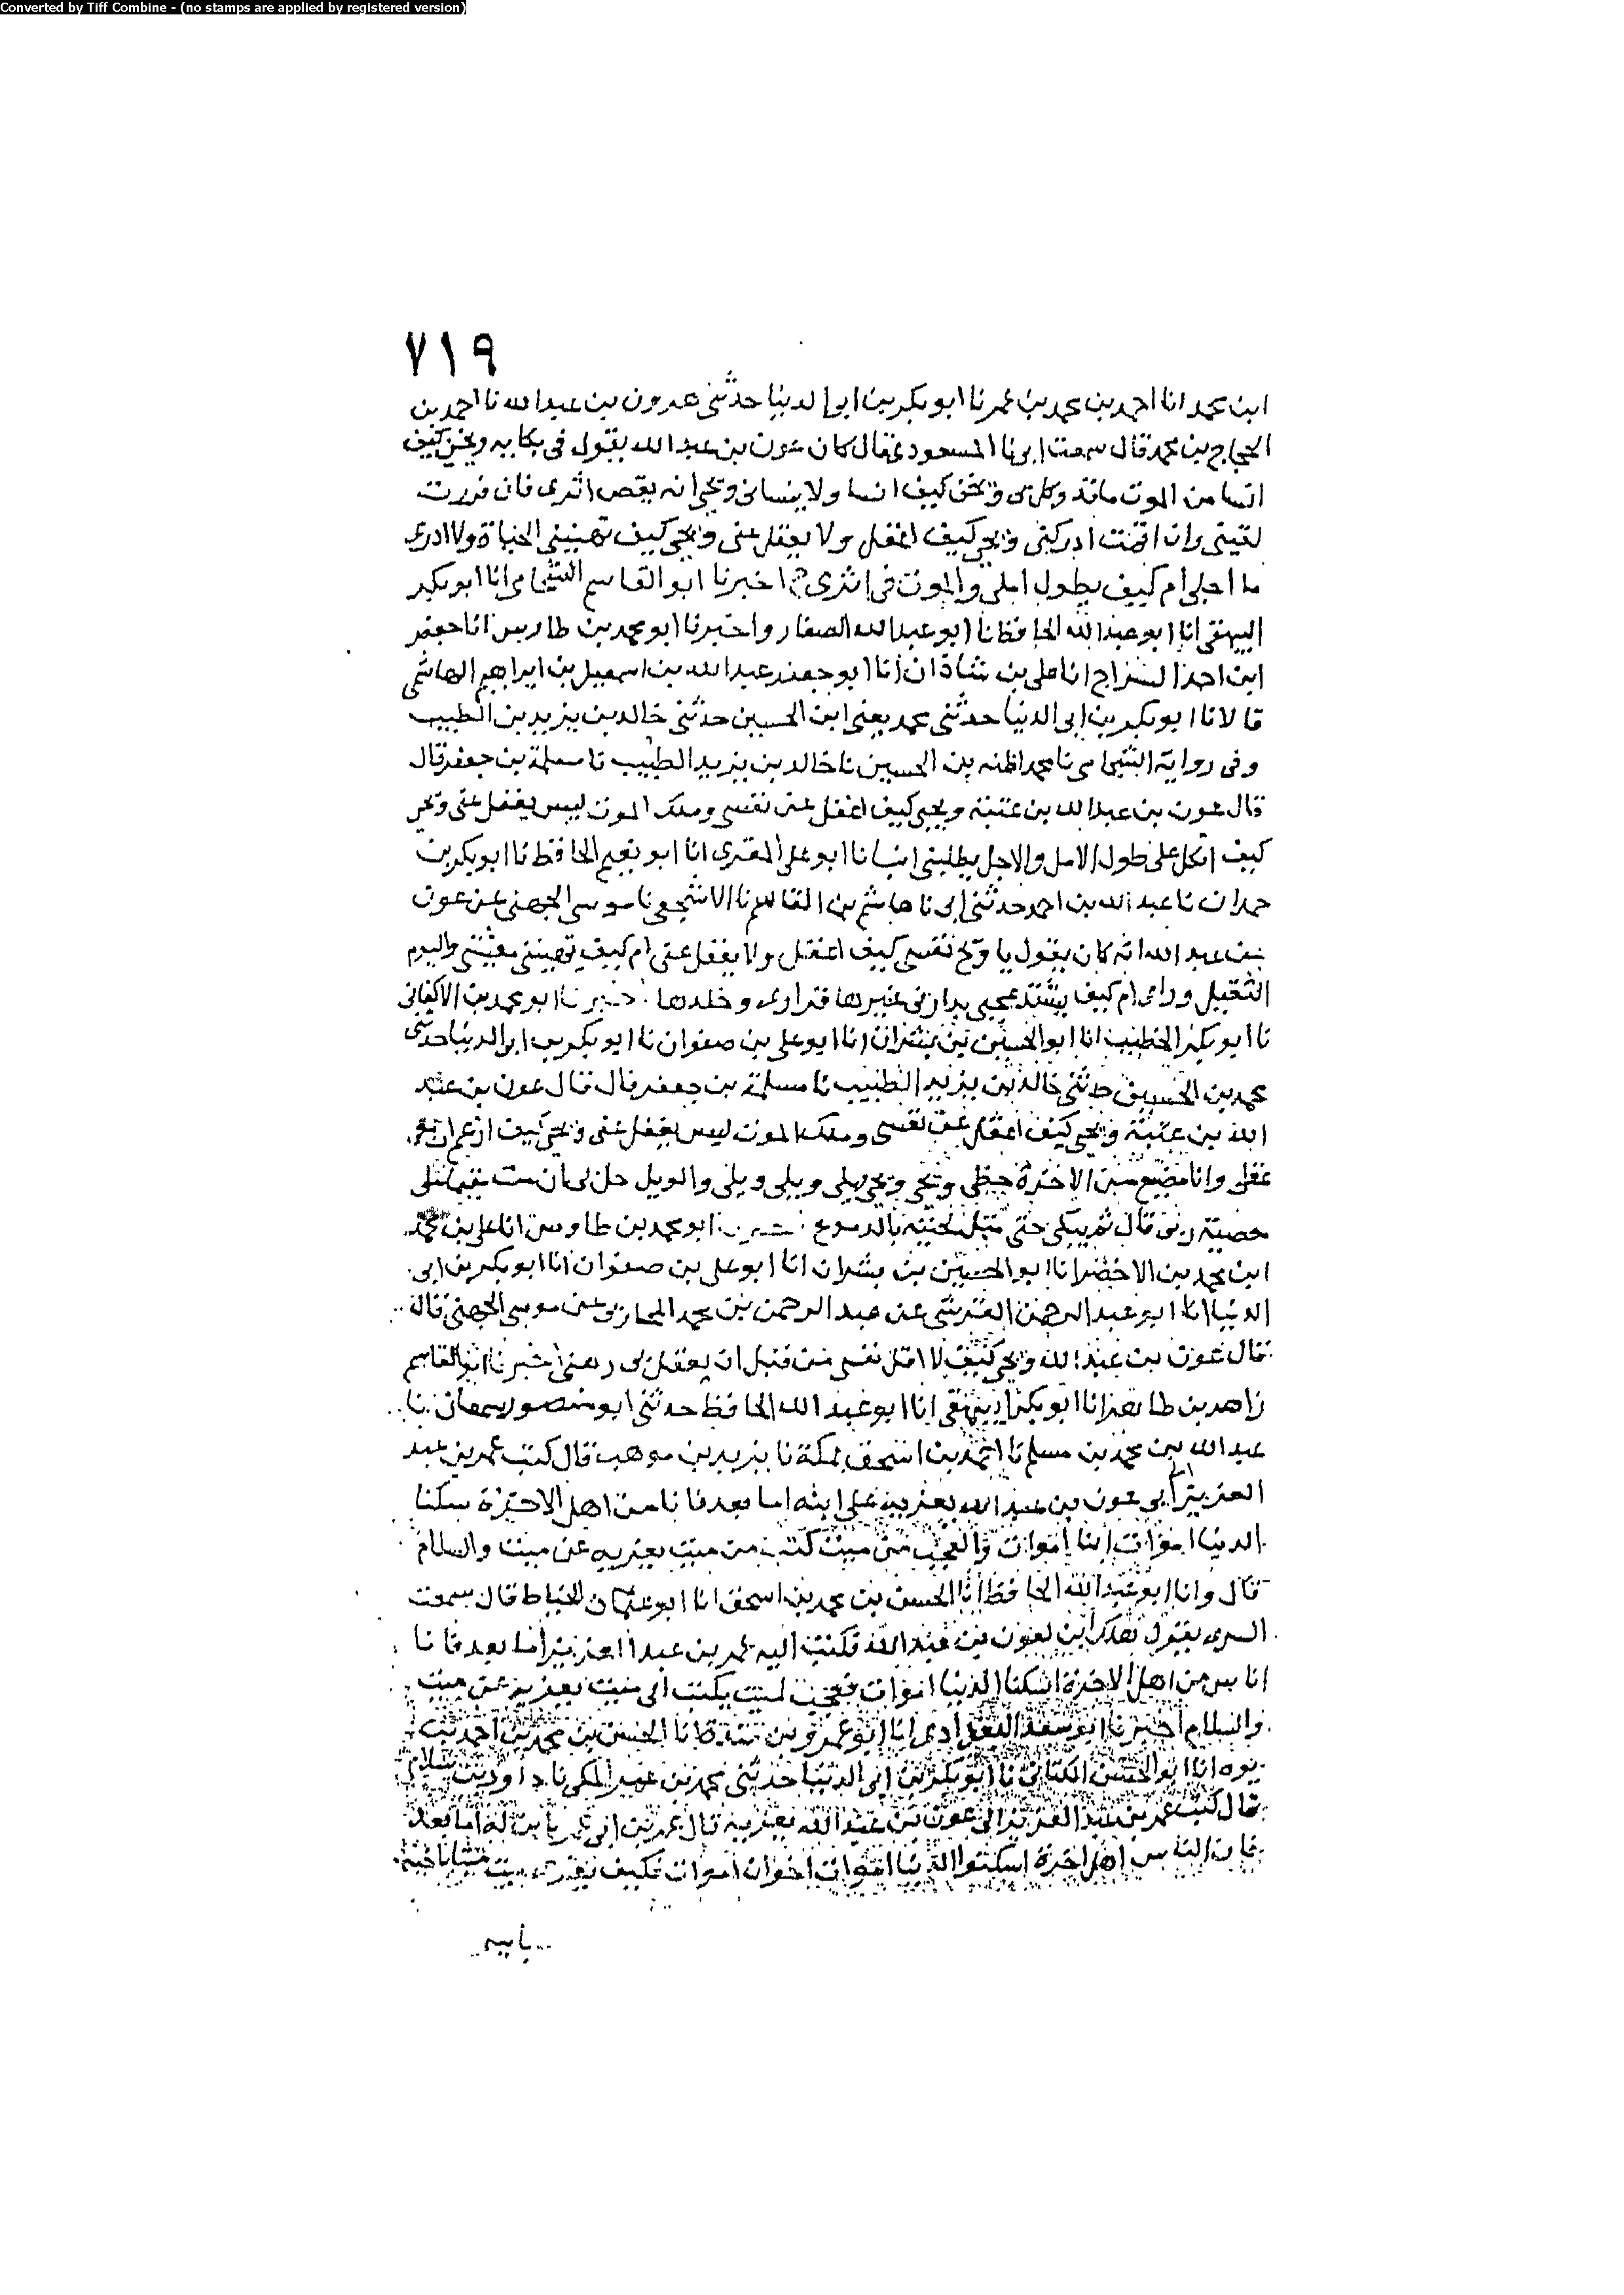 Converted by Tiff Combine - (no stamps are applied by registered version)
٧١٩
ابن محمد انا احمد بن محمد بن عمر نا ابو بكر بن ابى الدنيا حدثنى هرون بن عبد الله نا احمد بن
الحجاج بن محمد قال سمعت ابى نا المسعودى قال كان عون بن عبد الله يقول فى بكايه ويحى كيف
انسا من الموت ويحى كيف انسا ولا ينسانى ويحى انه يقص اثرى فان فررت
لقيتى وان اقمت ادركنى ويحى كيف اغفل ولا يغفل عنى ويحى كيف تهنينى الحياة ولا ادرى
ما اجلى ام كيف يطول املى والموت فى اثرى اخبرنا ابو القاسم الشحامى انا ابو بكر
البيهقى انا ابو عبد الله الحافظ نا ابو عبد الله الصفار واخبرنا ابو محمد بن طاوس انا جعفر
ابن احمد السراج انا على بن شاذان انا ابو جعفر عبد الله بن اسمعيل بن ابراهيم الهاشمى
قالا نا ابو بكر بن ابى الدنيا حدثنى محمد يعنى ابن الحسين حدثنى خالد بن يزيد بن الطبيب
وفى رواية الشحامى نا محمد اظنه بن الحسين نا خالد بن يزيد الطبيب نا مسلمة بن جعفر قال
قال عون بن عبد الله بن عتبة ويحى كيف اغفل عن نفسى وملك الموت ليس يغفل عنى ويحى
كيف اتكل على طول الامل والاجل يطلبنى انبانا ابو على المقرى انا ابو نعيم الحافظ نا ابو بكر بن
حمدان نا عبد الله بن احمد حدثنى ابى نا هاشم بن القاسم نا الاشجعى نا موسى الجهنى عن عون
بن عبد الله انه كان يقول يا ويح نفسى كيف اغفل ولا يغفل عنى ام كيف تهنينى معيشتى واليوم
الثقيل وراى ام كيف يشتد عجبى بدار فى غيرها قرارى وخلدها اخبرنا ابو محمد بن الاكفانى
نا ابو بكر الخطيب انا ابو الحسين بن بشران انا ابو على بن صفوان نا ابو بكر بن ابى الدنيا حدثنى
محمد بن الحسين حدثنى خالد بن يزيد الطبيب نا مسلمة بن جعفر قال قال عون بن عبد
الله بن عتبة ويحى كيف اغفل عن نفسى وملك الموت ليس يغفل عنى ويحى كيف ازعم ان معى
عقلى وانا مضيع من الاخرة حظى ويحى ويحى ويلى ويلى والويل حل بى ان مت
ربى قال ثم يبكى حتى تبتل لحيته بالدموع اخبرنا ابو محمد بن طاوس انا على بن محمد
ابن محمد بن الاخضر انا ابو الحسين بن بشران انا ابو على بن صفوان انا ابو بكر بن ابى
الدنيا انا ابو عبد الرحمن القرشى عن عبد الرحمن بن محمد المحاربى عن موسى الجهنى قال
قال عون بن عبد الله ويحى كيف لا نفسى من قبل ان يغلق رهنى اخبرنا ابو القاسم
زاهد بن طاهر انا ابو بكر البيهقى انا ابو عبد الله الحافظ حدثنى ابو منصور نا
عبد الله بن محمد بن مسلم نا احمد بن اسحق بمكة نا يزيد بن موهب قال كتب عمر بن عبد
العزيز الى عون بن عبد الله يعزيه على ابنه اما بعد فانا من اهل الاخرة سكنا
الدنيا اموات ابنا اموات والعجب من ميت كتب من ميت يعزيه عن ميت والسلام
قال وانا ابو عبد الله الحافظ انا الحسن بن محمد بن اسحق انا ابو عثمان الخياط قال سمعت
السرى يقول ابن لعون بن عبد الله فكتب اليه عمر بن عبد العزيز اما بعد فانا
اناس من اهل الاخرة اسكنا الدنيا اموات فعجب لميت يكتب الى ميت يعزيه عن ميت
والسلام اخبرنا ابو سعد البغدادى انا ابو عمرو بن مندة انا الحسن بن محمد بن احمد بن
يوه انا ابو الحسن نا ابو بكر بن ابى الدنيا حدثنى محمد بن المكى نا داود بن
قال كتب عمر بن عبد العزيز الى عون بن عبد الله يعزيه اما بعد
فان الناس اهل اخرة اسكنوا الدنيا اموات اخوان اموات فكيف يعزى ميت